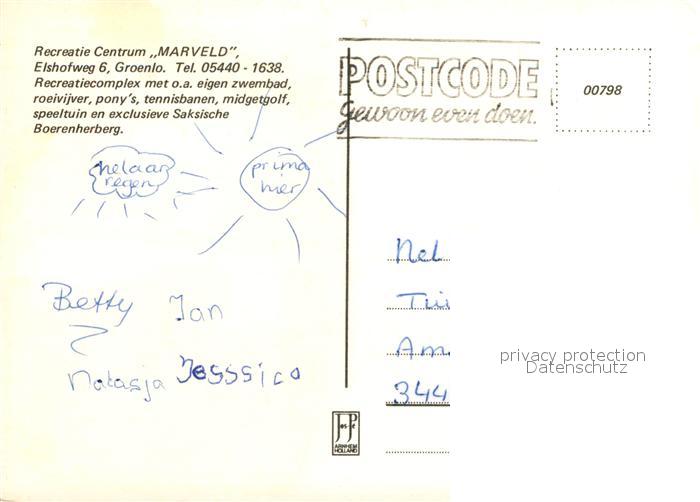 Recreatie Centrum „MARVELD",
Elshofweg 6, Groenlo. Tel. 05440 - 1638.
Recreatiecomplex met o.a. eigen zwembad,
roeivijver, pony's, tennisbanen, midgetgolf,
speeltuin en exclusieve Saksische
Boerenherberg.
POSTCODE
gewoon even doen.
00798
helaas
regen
prima
hier
Betty Jan
Natasja Jesssica
Nel
Am
344
privacy protection
Datenschutz
JosPe
ARNHEM
HOLLAND